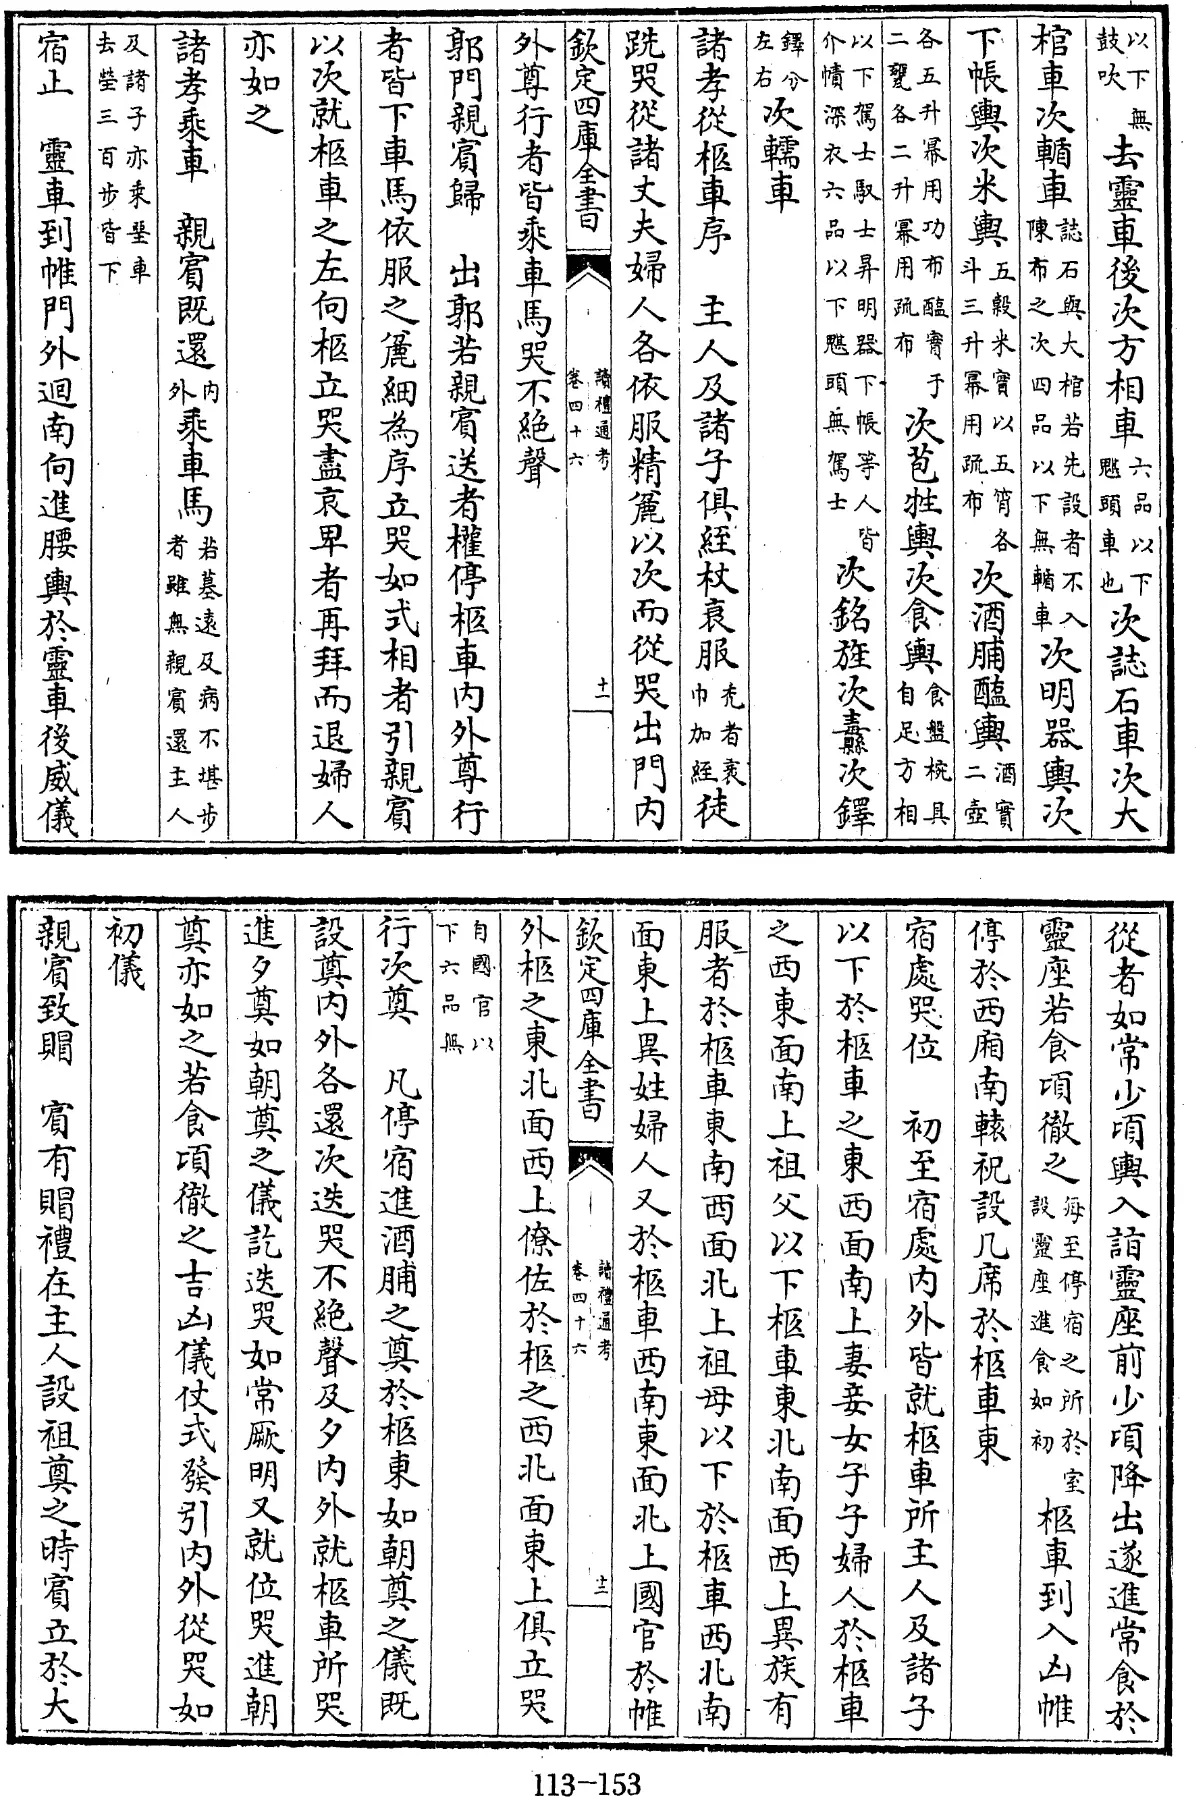 以下無鼓吹去靈車後次方相車六品以下魌頭車也次誌石車次大
棺車次輴車誌石與大棺若先設者不入陳布之次四品以下無輴車次明器輿次
下帳輿次米輿五穀米實以五筲各斗三升冪用疏布次酒脯醢輿二酒實壺
各五升冪用功布醢實于二甕各二升冪用疏布次苞牲輿次食輿食盤椀具自足方相
以下駕士馭士舁明器下帳等人皆介幘深衣六品以下魌頭無駕士次銘旌次纛次鐸
鐸分左右次轜車
諸孝從柩車序　主人及諸子俱絰杖衰服禿者衰巾加絰徒
跣哭從諸丈夫婦人各依服精麄以次而從哭出門内
欽定四庫全書　讀禮通考卷四十六　十一
外尊行者皆乘車馬哭不絶聲
郭門親賓歸　出郭若親賓送者權停柩車内外尊行
者皆下車馬依服之麄細為序立哭如式相者引親賓
以次就柩車之左向柩立哭盡哀卑者再拜而退婦人
亦如之
諸孝乘車　親賓既還内外乘車馬若墓遠及病不堪步者雖無親賓還主人
及諸子亦乘堊車去塋三百步皆下
宿止　靈車到帷門外迴南向進腰輿於靈車後威儀
從者如常少頃輿入詣靈座前少頃降出遂進常食於
靈座若食頃徹之每至停宿之所於室設靈座進食如初柩車到入凶帷
停於西廂南轅祝設几席於柩車東
宿處哭位　初至宿處内外皆就柩車所主人及諸子
以下於柩車之東西面南上妻妾女子子婦人於柩車
之西東面南上祖父以下柩車東北南面西上異族有
服者於柩車東南西面北上祖母以下於柩車西北南
面東上異姓婦人又於柩車西南東面北上國官於帷
欽定四庫全書　讀禮通考卷四十六　十二
外柩之東北面西上僚佐於柩之西北面東上俱立哭
自國官以下六品無
行次奠　凡停宿進酒脯之奠於柩東如朝奠之儀既
設奠内外各還次迭哭不絶聲及夕内外就柩車所哭
進夕奠如朝奠之儀訖迭哭如常厥明又就位哭進朝
奠亦如之若食頃徹之吉凶儀仗式發引内外從哭如
初儀
親賓致賵　賓有賵禮在主人設祖奠之時賓立於大
113-153